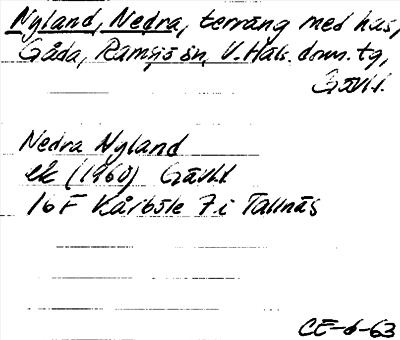 Nyland, Nedra, terräng med hus,
Gåda, Ramsjö sn, V. Häls. doms. tg,
Gävl.l.
Nedra Nyland
ek (1960) Gävl.l.
16 F Kårböle 7.i Tallnäs
CE-6-63